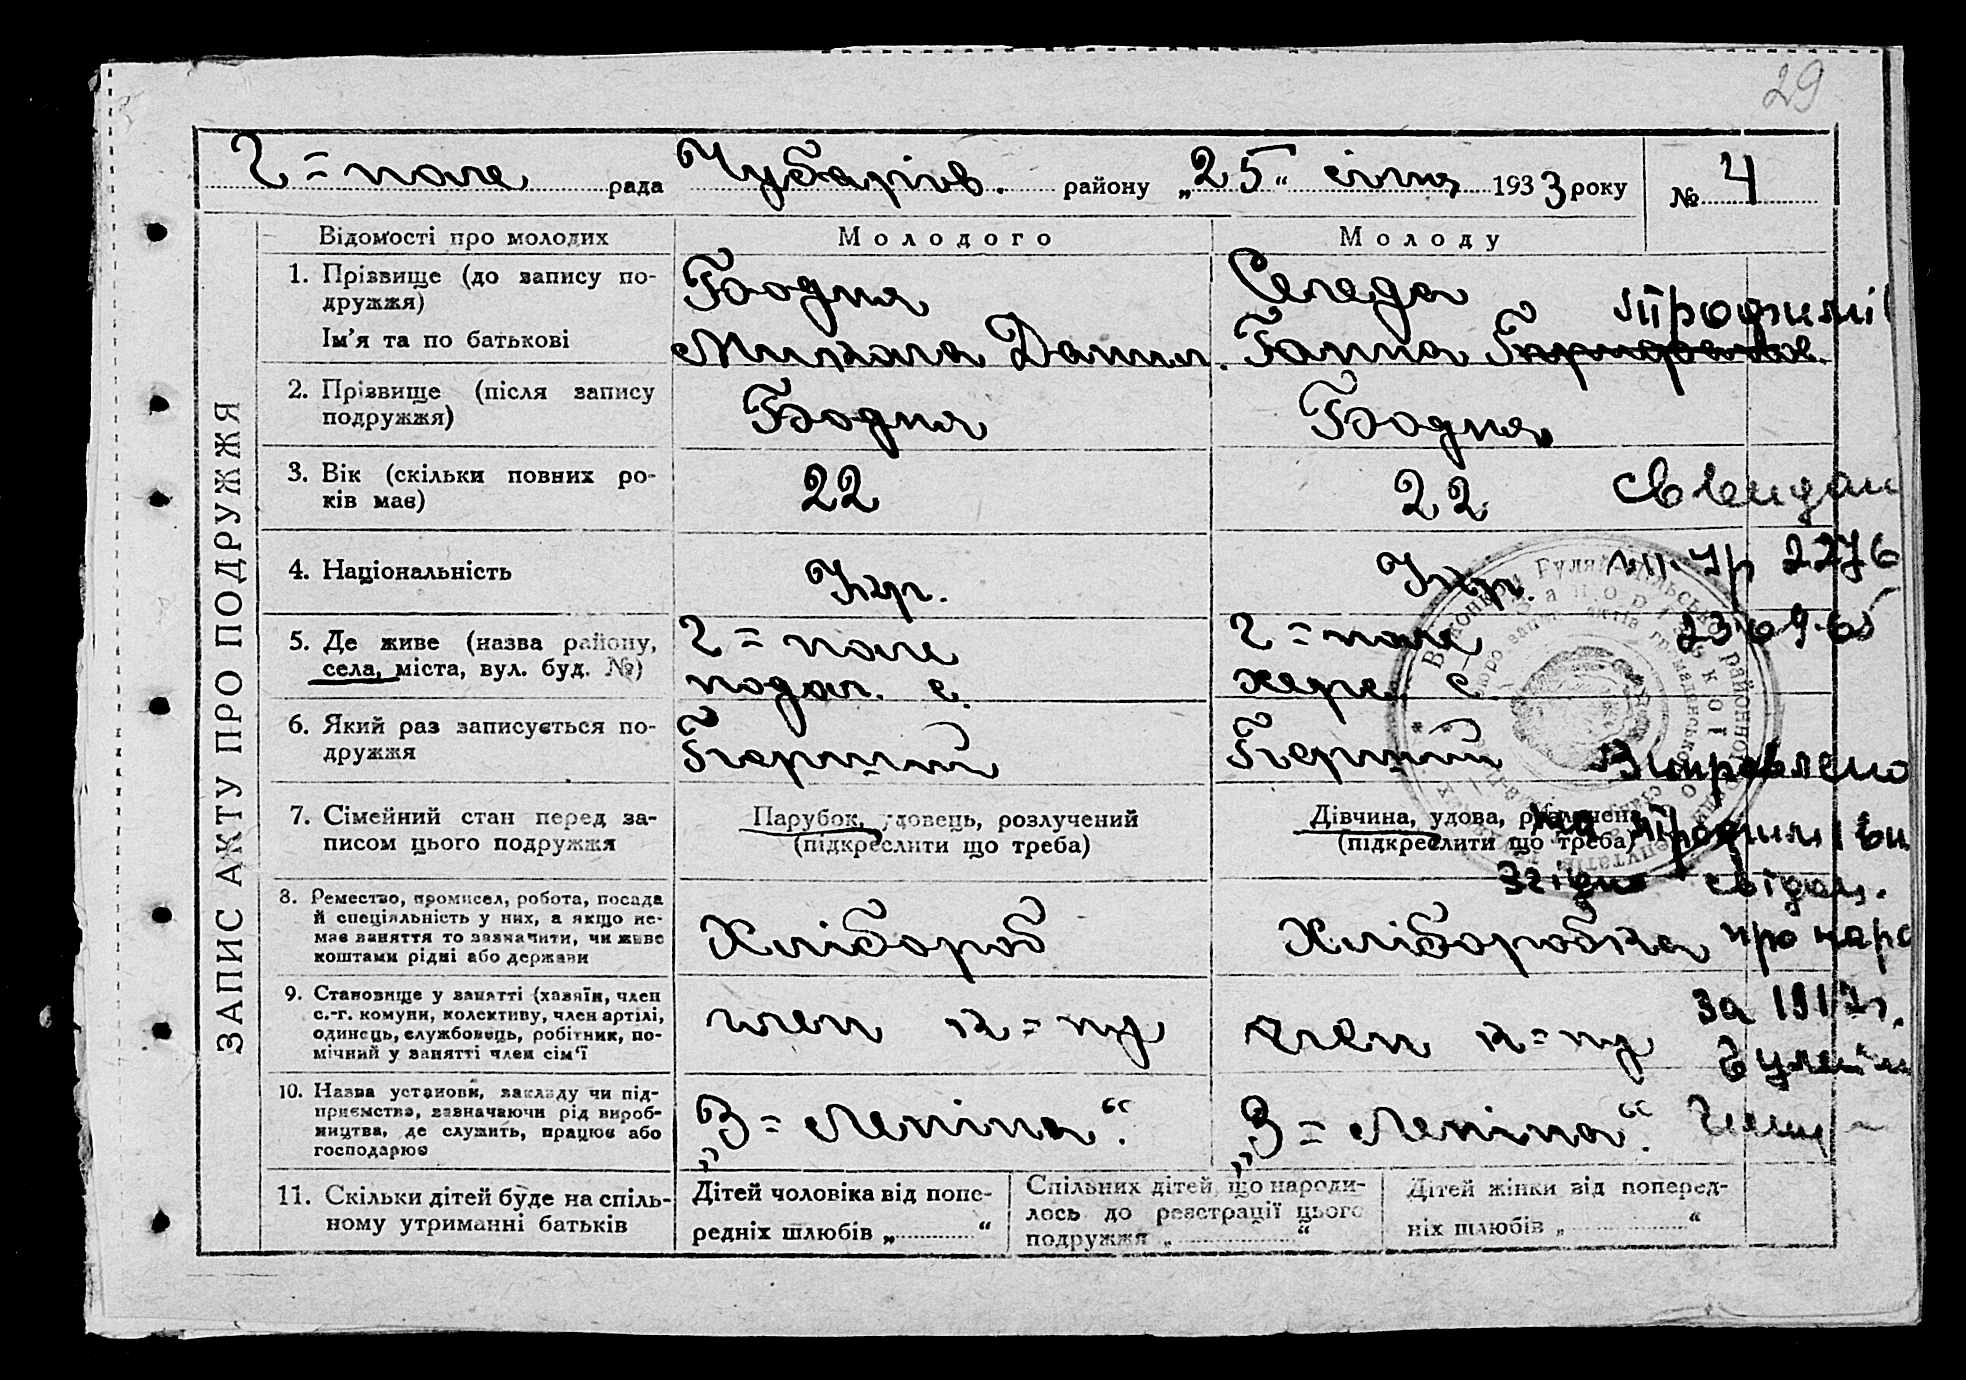 29
Г=поле рада Чубарів. району „25“ січня 1933 року № 4
ЗАПИС АКТУ ПРО ПОДРУЖЖЯ
Відомості про молодих
Молодого
Молоду
1. Прізвище (до запису по-
дружжя)
Ім'я та по батькові
Бодня
Микола Данил.
Середа
Ганна
Трофимів
2. Прізвище (після запису
подружжя)
Бодня
Бодня
3. Вік (скільки повних ро-
ків має)
22
22
4. Національність
Укр.
Укр.
5. Де живе (назва району,
села, міста, вул. буд. №)
Г=поле
подол. с.
Г=поле
херс. с.
6. Який раз записується по-
дружжя
Перший
Перший
7. Сімейний стан перед за-
писом цього подружжя
Парубок, удовець, розлучений
(підкреслити що треба)
Дівчина, удова, розлучена
(підкреслити що треба)
8. Ремество, промисел, робота, посада
й спеціяльність у них, а якщо не-
має заняття то зазначити, чи живе
коштами рідні або держави
Хлібороб
Хліборобка
9. Становище у занятті (хазяїн, член
с.-г. комуни, колективу, член артілі,
одинець, службовець, робітник, по-
мічний у занятті член сім'ї
член к=пу
член к=пу
10. Назва установи, закладу чи під-
приємства, зазначаючи рід вироб-
ництва, де служить, працює або
господарює
„З=Леніна“.
„З=Леніна“.
11. Скільки дітей буде на спіль-
ному утриманні батьків
Дітей чоловіка від попе-
редніх шлюбів „ “
Спільних дітей, що народи-
лось до реєстрації цього
подружжя „ “
Дітей жінки від поперед-
ніх шлюбів „ “
2276
23.09.65
Виправлено
на Трофимівн
згідно свідоц.
про наро
за 1912 г.